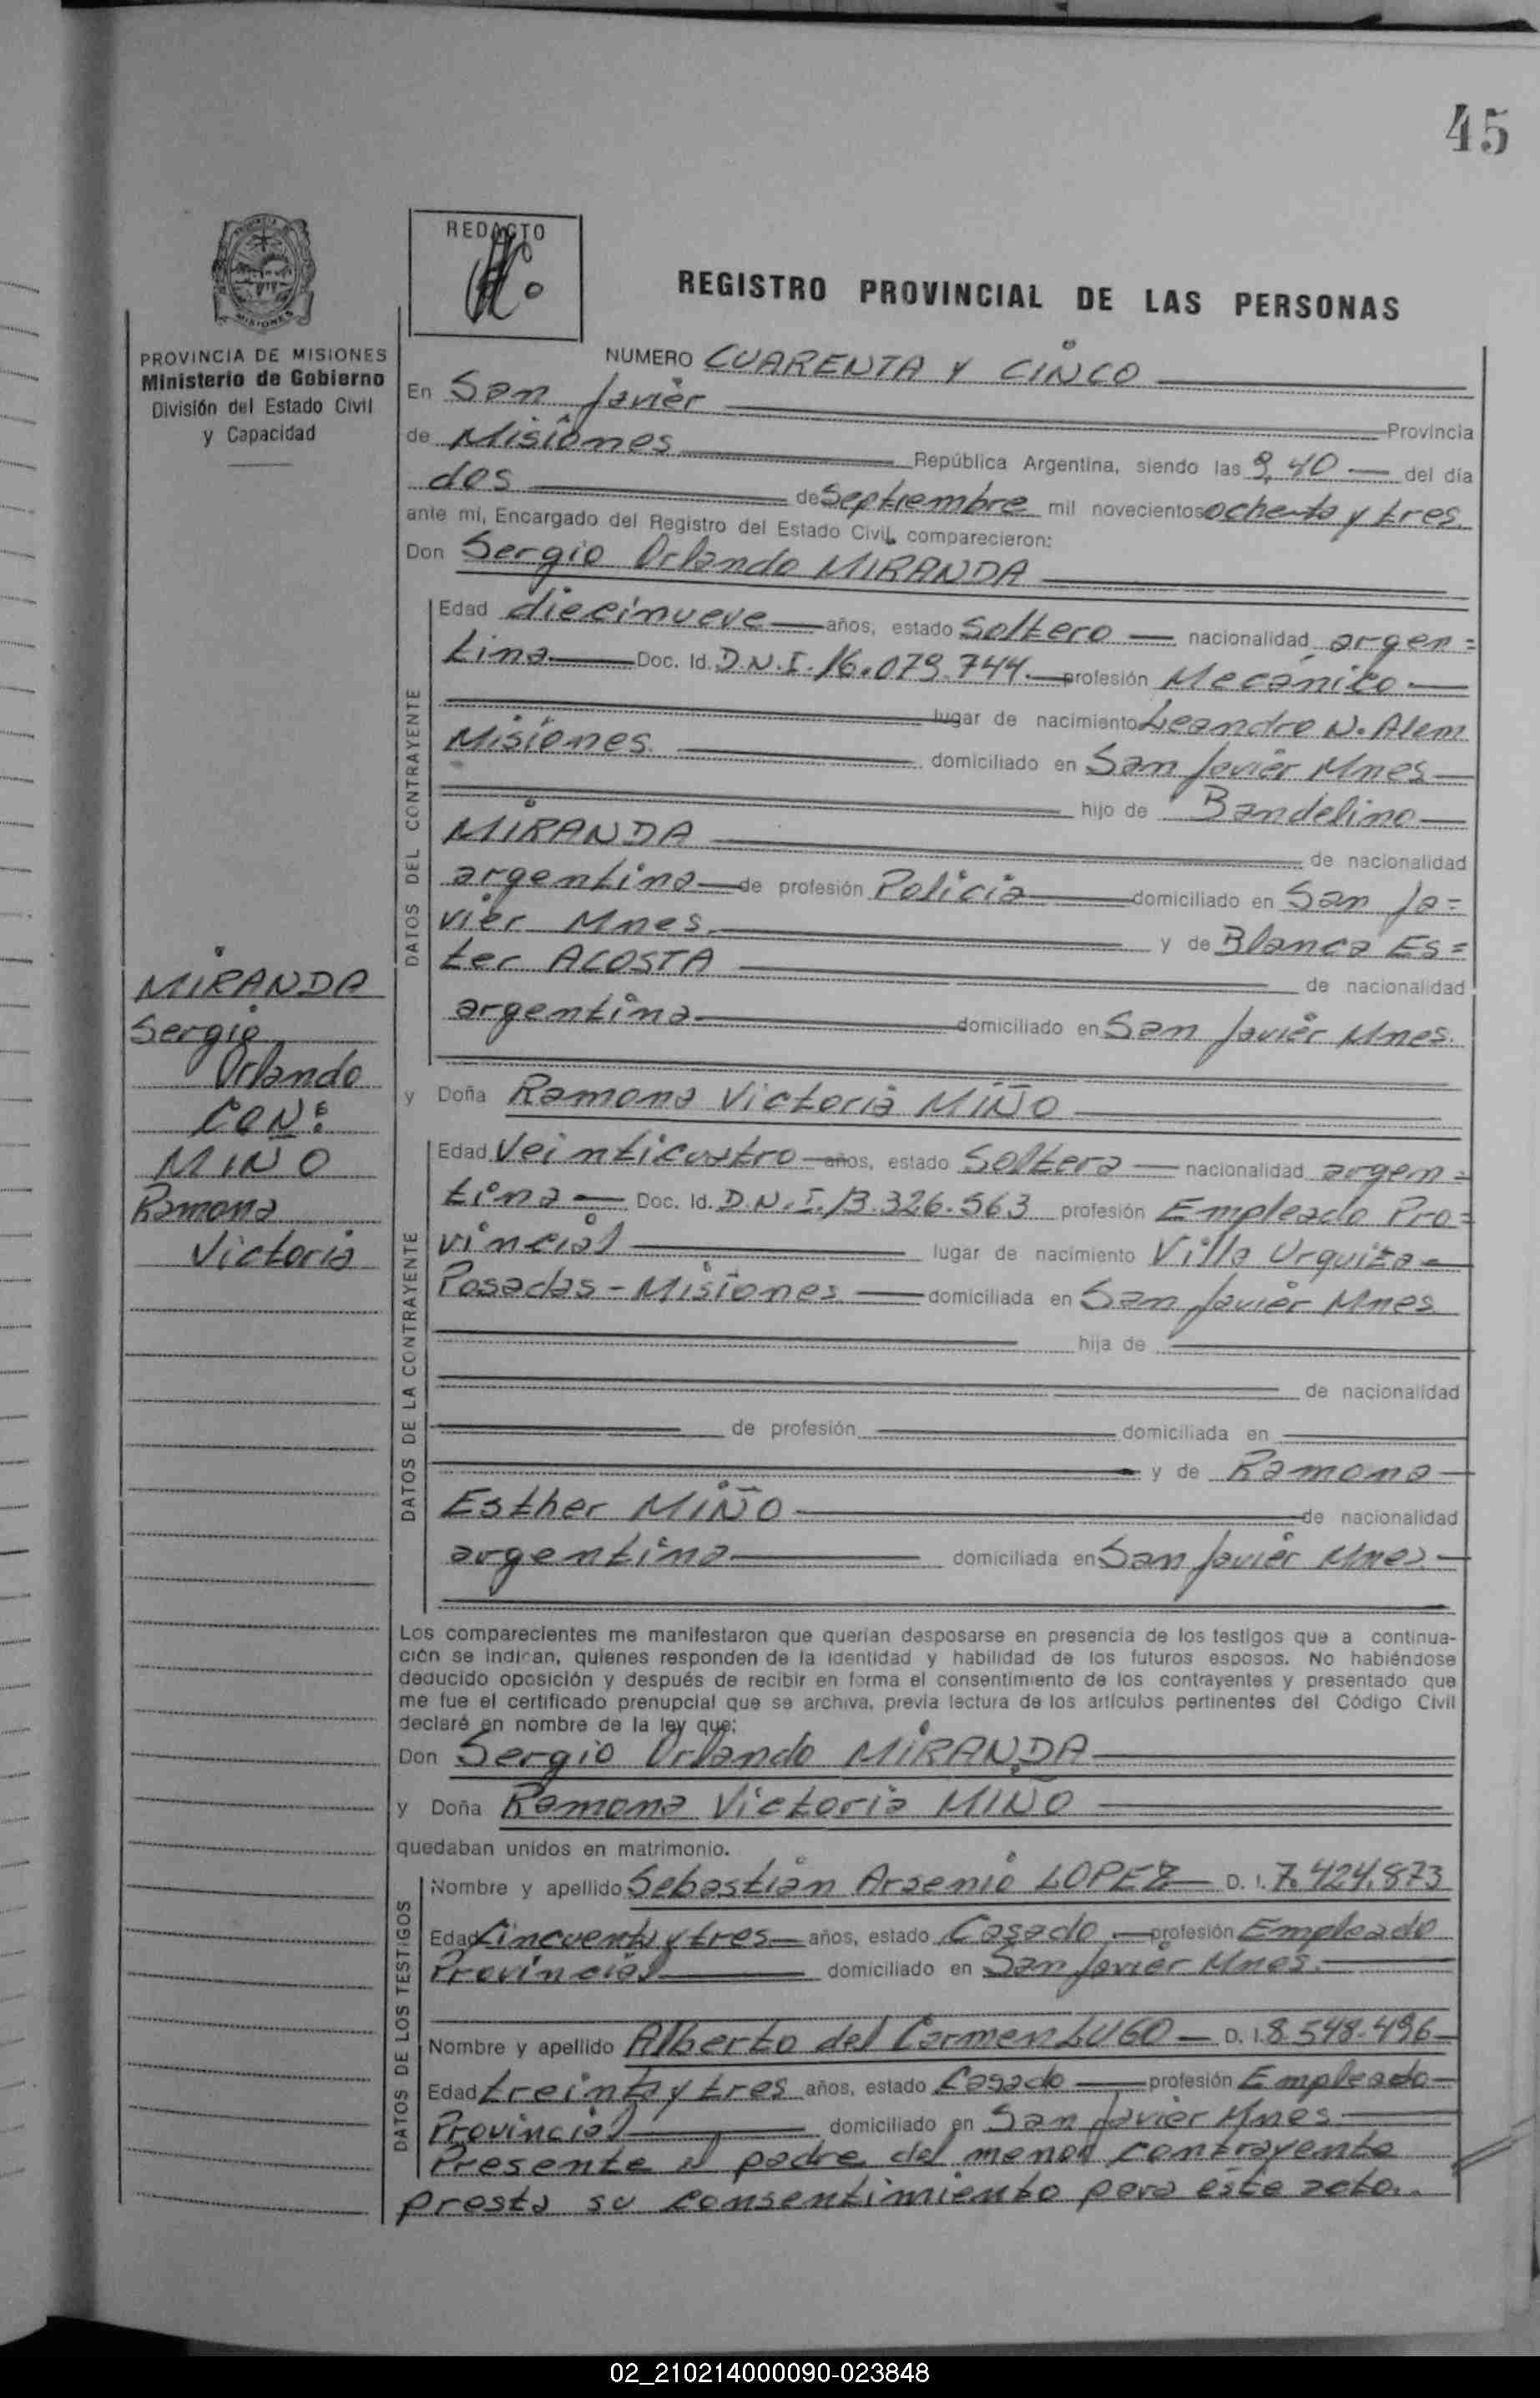 45
REDACTO
REGISTRO PROVINCIAL DE LAS PERSONAS
MISIONES
PROVINCIA DE MISIONES
Ministerio de Gobierno
División del Estado Civil
y Capacidad
NUMERO CUARENTA Y CINCO
En San Javier
Provincia
de Misiones República Argentina, siendo las 9,40 del día
dos de Septiembre mil novecientos ochenta y tres
ante mí, Encargado del Registro del Estado Civil, comparecieron:
Don Sergio Orlando MIRANDA
DATOS DEL CONTRAYENTE
Edad diecinueve años, estado Soltero nacionalidad argen=
tina Doc. Id. D.N.I. 16.079.744. profesión Mecánico
lugar de nacimiento Leandro N. Alem
Misiones. domiciliado en San Javier Mnes
hijo de Bandelino
MIRANDA de nacionalidad
argentina de profesión Policia domiciliado en San Ja=
vier Mnes. y de Blanca Es=
ter ACOSTA de nacionalidad
argentina domiciliado en San Javier Mnes.
MIRANDA
Sergio
Orlando
CON:
MIÑO
Ramona
Victoria
y Doña Ramona Victoria MIÑO
DATOS DE LA CONTRAYENTE
Edad Veinticuatro años, estado Soltera nacionalidad argen=
tina Doc. Id. D.N.I. 13.326.563 profesión Empleada Pro=
vincial lugar de nacimiento Villa Urquiza-
Posadas-Misiones domiciliada en San Javier Mnes
hija de
de nacionalidad
de profesión domiciliada en
y de Ramona
Esther MIÑO de nacionalidad
argentina domiciliada en San Javier Mnes.
Los comparecientes me manifestaron que querían desposarse en presencia de los testigos que a continua-
ción se indican, quienes responden de la identidad y habilidad de los futuros esposos. No habiéndose
deducido oposición y después de recibir en forma el consentimiento de los contrayentes y presentado que
me fue el certificado prenupcial que se archiva, previa lectura de los artículos pertinentes del Código Civil
declaré en nombre de la ley que:
Don Sergio Orlando MIRANDA
y Doña Ramona Victoria MIÑO
quedaban unidos en matrimonio.
DATOS DE LOS TESTIGOS
Nombre y apellido Sebastián Arsenio LOPEZ D. I. 7.424.873
Edad Cincuenta y tres años, estado Casado profesión Empleado
Provincial domiciliado en San Javier Mnes.
Nombre y apellido Alberto del Carmen LUGO D. I. 8.548.496
Edad treinta y tres años, estado Casado profesión Empleado
Provincial domiciliado en San Javier Mnes
Presente el padre del menor contrayente
presta su consentimiento para éste acto.
02_210214000090-023848